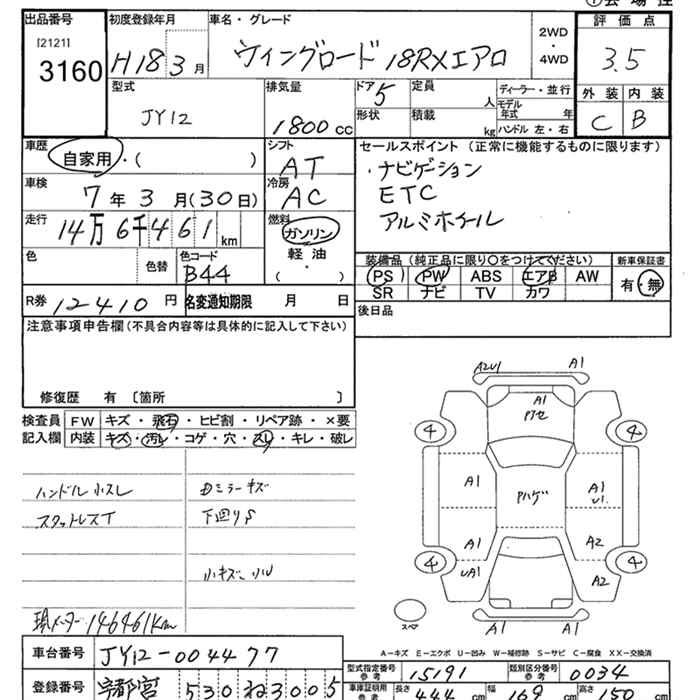 出品番号 初度登録年月 車名・グレード 評価点
[2121] 3160 H18 3月 ウィングロード 18RXエアロ 2WD・4WD 3.5
型式 排気量 ドア 定員 ディーラー・並行 外装 内装
JY12 1800cc 5 人 モデル年式 年 C B
形状 積載 kg ハンドル 左・右
車歴 シフト セールスポイント(正常に機能するものに限ります)
自家用・( ) AT ・ナビゲーション
車検 冷房 ETC
7年3月(30日) AC アルミホイール
走行 燃料
14万6千461km ガソリン
色 色替 色コード 軽油
B44 ・( )
装備品(純正品に限り○をつけてください) 新車保証書
PS PW ABS エアB AW 有・無
SR ナビ TV カワ
R券 12410円 名変通知期限 月 日 後日品
注意事項申告欄(不具合内容等は具体的に記入して下さい)
修復歴 有〔箇所 〕
検査員 FW キズ・飛石・ヒビ割・リペア跡・×要
記入欄 内装 キズ・汚レ・コゲ・穴・スレ・キレ・破レ
ハンドル小スレ Dミラーキズ
下回りS
小キズ・小U
現メーター146461km
A2U1 A1
A1
4 4
A1 Pハゲ A1
U1
A1 A2
4 4
UA1 A2
スペア
A1 A1
A-キズ E-エクボ U-凹み W-補修跡 S-サビ C-腐食 XX-交換済
車台番号 JY12-004477
型式指定番号 参考 15191 類別区分番号 参考 0034
登録番号 宇都宮 530 ね 3005
車庫証明用 参考 長さ 444cm 幅 169cm 高さ 150cm